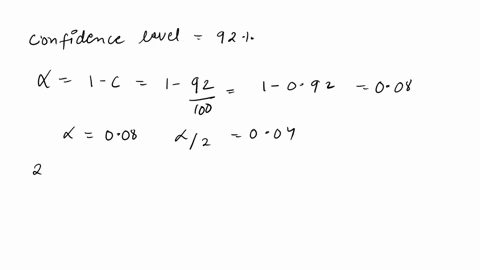 Confidence level = 92%
α = 1 - C = 1 - 92/100 = 1 - 0.92 = 0.08
α = 0.08 α/2 = 0.04
2